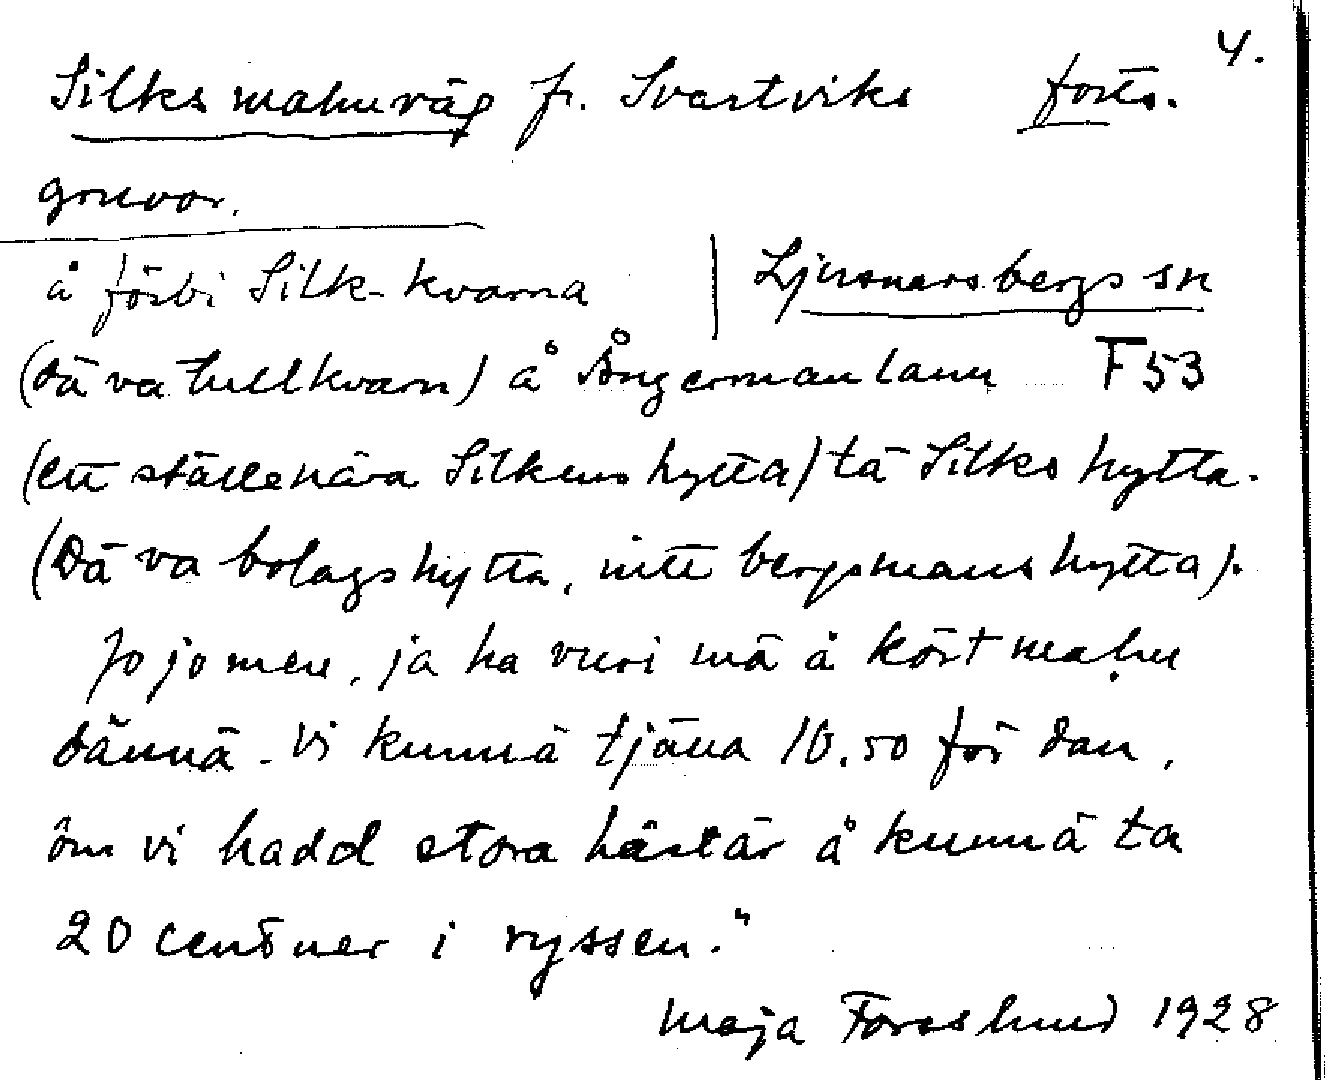 4.
Silks malmväg fr. Svartviks forts.
gruvor.
å förbi Silk-kvarna
Ljusnarsbergs sn
(dä va tullkvarn) å Ångermanlann F 53
(ett ställe nära Silkens hytta) tä Silks hytta.
(Dä va bolagshytta, inte bergsmanshytta).
Jo jo men, ja ha vuri mä å kört malm
dännä. Vi kunnä tjäna 10.50 för dan,
om vi hadd stora hästär å kunnä ta
20 centner i ryssen."
Maja Forsslund 1928